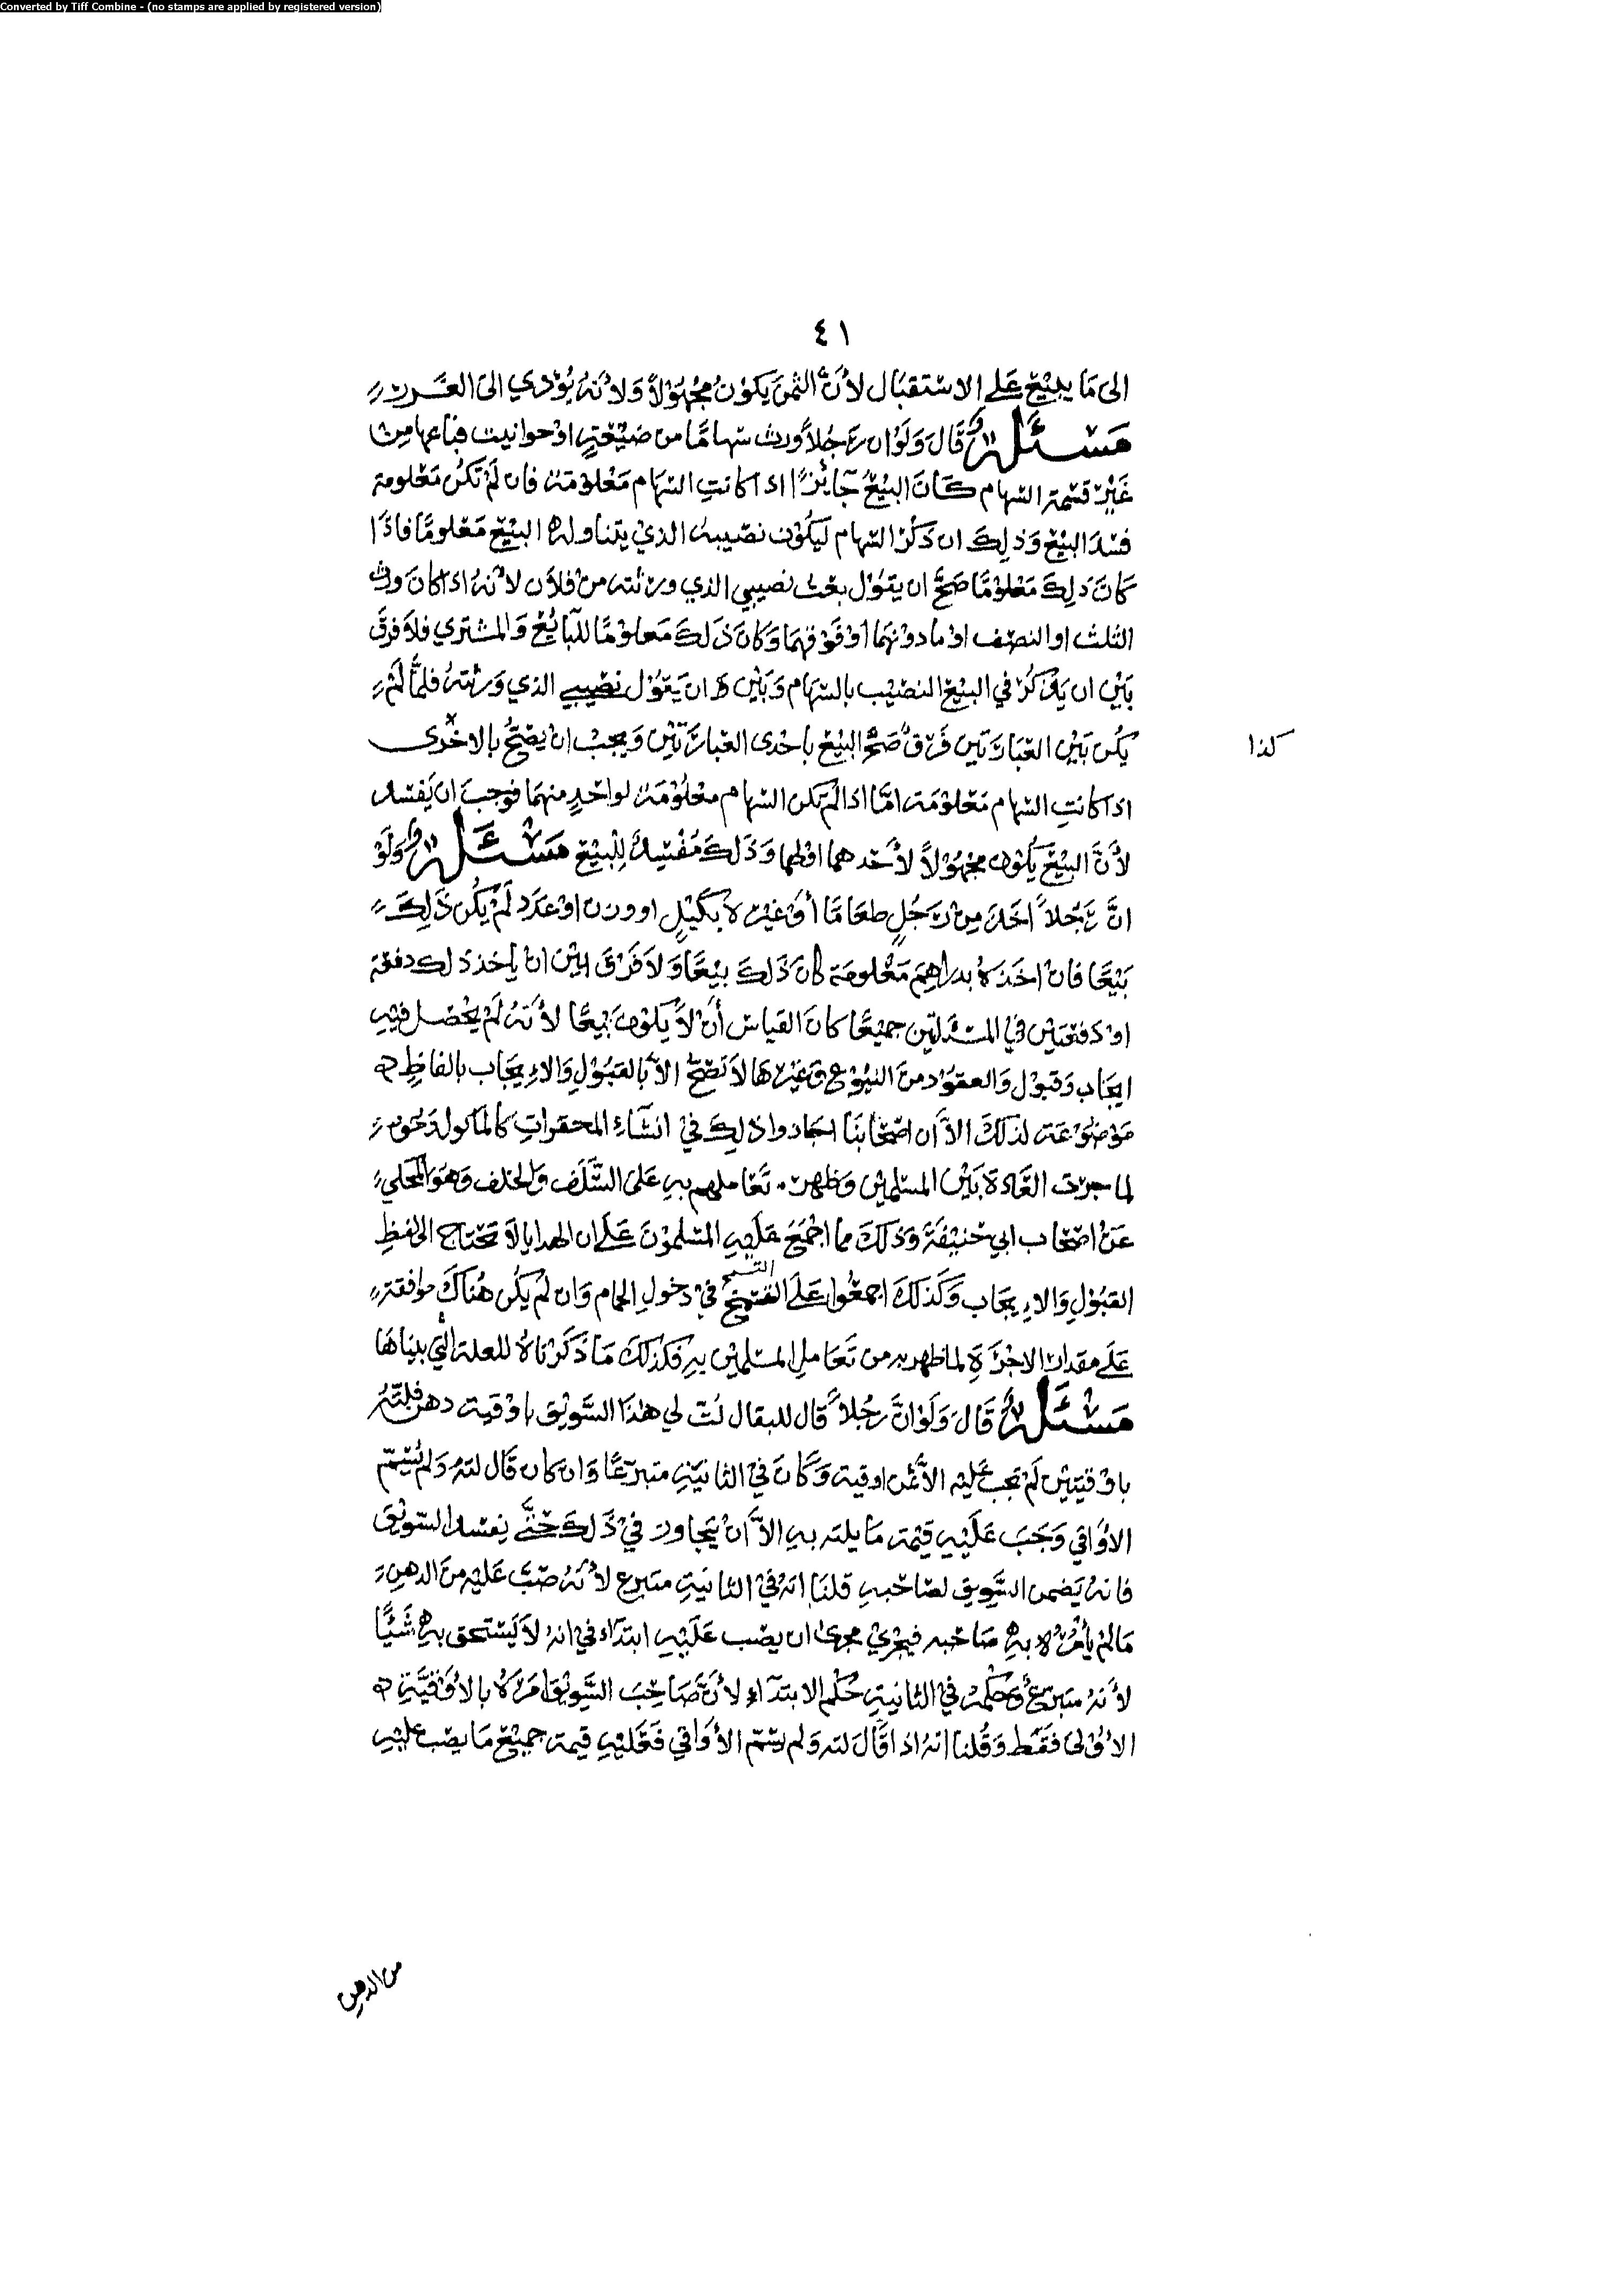 Converted by Tiff Combine - (no stamps are applied by registered version)
٤١
الى مَا يبيْع عَلى الاسْتقبَال لأنَّ الثمنَ يَكوْنُ مجْهُوْلاً وَلأنهُ يُؤدي الى الغَرر
مَسْئَلة قَالَ وَلَوْ ان رَجُلاً ورث سهامًا من ضيْعَةٍ اوْ حوانيت فباعها من
غَيْر قسْمة السّهام كَانَ البيْعُ جَائزًا اذا كانتِ السّهام مَعْلوْمَة فان لَمْ تَكنْ مَعْلومة
فسَدَ البيْع وَذلِكَ ان ذكرَ السّهام ليَكُوْن نصْيبهُ الذيْ يتناوله البيْع مَعْلومًا فاذَا
كَانَ ذلِكَ مَعْلوْمًا صَحَّ ان يقوْل بعْت نصيبي الذي ورثته منْ فلان لأنهُ اذا كانَ ورث
الثلث او النصْف اوْ مادوْنهَمَا اوْ فَوْقهمَا وَكانَ ذَلكَ مَعلوْمًا للبَائعْ وَالمشتري فلاَ فرقَ
بَيْن ان يَذكرُ في البيْع النصيْب بالسّهَام وَبَيْن ان يَقوْل نصْيبي الذي وَرثتهُ فلمَّا لَمْ
يَكُن بَيْن العبَارَتَين فَرْقٌ صَحَّ البيْع باحْدى العبَارَتَيْن وَيجبْ انْ يصْحُّ بالاخْرى
كذا
اذا كانتِ السّهام مَعْلوْمَة امَّا اذا لَمْ يَكن السّهام معْلوْمَة لواحْدٍ منهمَا فوَجبَ ان يَفْسد
لأنَّ البيْعَ يَكُوْن مجْهُوْلاً لأحَدهما اوْ لهما وَذلكَ مُفْسِدٌ لِلبيْع مَسْئَلة وَلَوْ
انَّ رَجُلاً اخَذَ مِنْ رَجُلٍ طعَامًا أوْ غيْره لا بكَيْلٍ او وزن اوْ عَدَد لَمْ يَكُن ذَلِكَ
بَيْعًا فانْ اخَذهُ بدراهِمَ مَعْلومَة كانَ ذَلكَ بيْعًا وَلاَ فَرْقَ بيْن انْ يأخذ ذلك دفعة
اوْ دَفعتيْن في المسْئَلتَين جميْعًا كانَ القيَاس أنْ لاَ يَكوْن بَيْعًا لأنهُ لَمْ يَحْصَل فيْهِ
ايجَاب وَقبوْل وَالعقوْد منَ البيُوْع وَغَيْرهَا لاَ تَصْحُّ الاَّ بالقبُوْلِ وَالاِيجَاب بالفاظٍ
مَوْضوْعَة لذلكَ الاَّ أن اصْحَابنَا اجَازوا ذلِكَ فيْ المحقراتِ كالمأكول وَنَحْوه
لما جرَت العَادة بَيْن المسْلمِيْن وَظهرَ تَعَاملهم بهِ عَلى السَّلَف وَالخلف وَهوَ المحْكي
عَنْ اصْحَاب ابي حَنيْفَةَ وَذلكَ مما اجْمَعَ عَليْهِ المسْلموْنَ عَلى ان الهدايا لاَ تَحْتاج الى لفظِ
القبُوْلِ وَالاِيجَاب وَكَذلكَ اجمعُوا عَلَى في دخولِ الحمام وَان لَمْ يَكُن هُنَاكَ موافقة
عَلى مقدار الاجْرَةِ لما ظهر من تَعَامل المسْلميْن بهِ فكذلكَ مَا ذَكَرْنَاهُ للعلة التي بينَاهَا
مَسْئَلة قَالَ وَلَوْ انَّ رَجُلاً قال للبقال لتّ لي هٰذا السَّويْق باوْقية دهن فلتّهُ
باوْقيتيْن لَمْ يجبْ عَليْه الاَّ ثمن اوقية وَكَانَ فيْ الثانيَةِ متبرّعًا وَان كان قَال لتهُ وَلَمْ يُسَمّ
الأوَاقي وَجَبَ عَلَيْهِ قيْمة مَا يلته بهِ الاَّ انْ يَتَجاوز فيْ ذَلكَ حَتَّى يفسد السّويْق
فانهُ يَضمن السَّويق لصَاحْبهِ قلنَا انهُ فيْ الثانيَةِ متبرع لأنهُ صَبَّ عَليْه منَ الدهن
مَا لمْ يأمُرْهُ بهِ صَاحْبه فيَجْريْ مجرى ان يصُب عَلَيْهِ ابتدَاء في انهُ لاَ يَسْتَحق بهِ شَيْئًا
لأنهُ متبرعٌ وَحكمْهُ في الثانيَةِ حُكْم الابتدَآءِ لأنَّ صَاحِبَ السَّويْق امَرَهُ بالأوْقيَّةِ
الأوْلى فَقَط وَقُلنا انهُ اذا قَالَ لته وَلم يسَمّ الأوَاقي فَعَليْهِ قيمة جميْع مَا يصُب عليْهِ
من الدهن